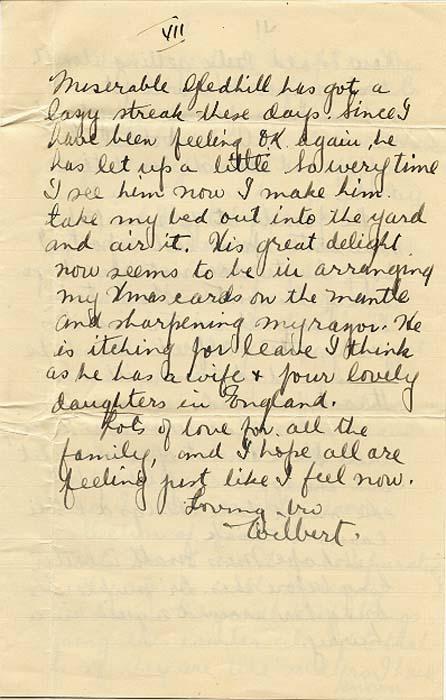 VII
Miserable Gledhill has got a
lazy streak these days. Since I
have been feeling OK again, he
has let up a little so every time
I see him now I make him
take my bed out into the yard
and air it. His great delight
now seems to be in arranging
my Xmas cards on the mantle
and sharpening my razor. He
is itching for leave I think
as he has a wife & four lovely
daughters in England.
Lots of love for all the
family, and I hope all are
feeling just like I feel now.
Loving bro
Wilbert.